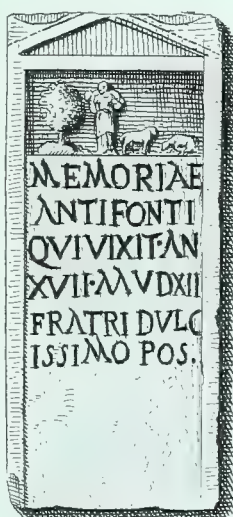 MEMORIAE
ANTIFONTI
QVIVIXIT·AN
XVII·MVDXII
FRATRI DVLC
ISSIMO POS.